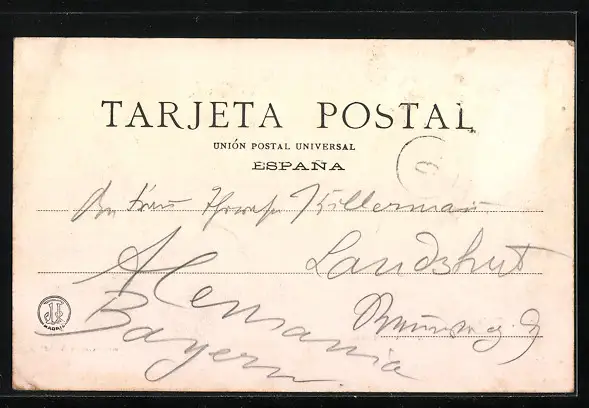 TARJETA POSTAL
UNIÓN POSTAL UNIVERSAL
ESPAÑA
An Frau Therese Killermann
Landshut
Alemania
Bayern
MADRID